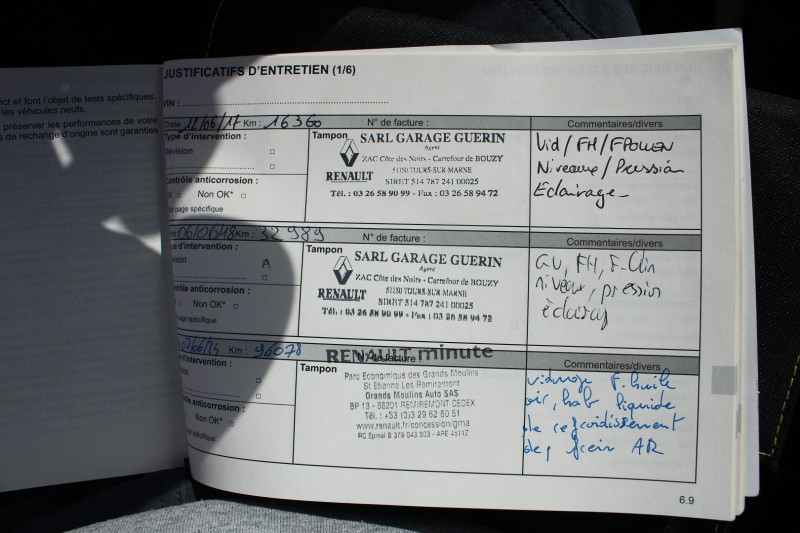 ict et font l'objet de tests spécifiques.
les véhicules neufs.
préserver les performances de votre
s de rechange d'origine sont garanties
JUSTIFICATIFS D'ENTRETIEN (1/6)
VIN :
Date : 12/06/17 Km : 16360 N° de facture : Commentaires/divers
Type d'intervention :
Révision
Contrôle anticorrosion :
Non OK*
page spécifique
Tampon SARL GARAGE GUERIN
Agent
RENAULT
ZAC Côte des Noirs - Carrefour de BOUZY
51150 TOURS-SUR-MARNE
SIRET 514 787 241 00025
Tél. : 03 26 58 90 99 - Fax : 03 26 58 94 72
Vid/FH/FPOLLEN
Niveaux/Pression
Eclairage
Km : 32989 N° de facture : Commentaires/divers
e d'intervention :
ision
ntrôle anticorrosion :
Non OK*
page spécifique
Tampon SARL GARAGE GUERIN
Agent
RENAULT
ZAC Côte des Noirs - Carrefour de BOUZY
51150 TOURS-SUR-MARNE
SIRET 514 787 241 00025
Tél. : 03 26 58 90 99 - Fax : 03 26 58 94 72
FH, F.
niveaux, pression
Km : 96078 N° de facture Commentaires/divers
d'intervention :
le anticorrosion :
Non OK*
spécifique
Tampon
RENAULT minute
Parc Economique des Grands Moulins
St Etienne Les Remiremont
Grands Moulins Auto SAS
BP 13 - 88201 REMIREMONT CEDEX
Tél. : +33 (0)3 29 62 60 51
www.renault.fr/concession/gma
RC Epinal B 379 043 953 - APE 4511Z
vidange F. huile
air, hab liquide
de refroidissement
frein AR
6.9